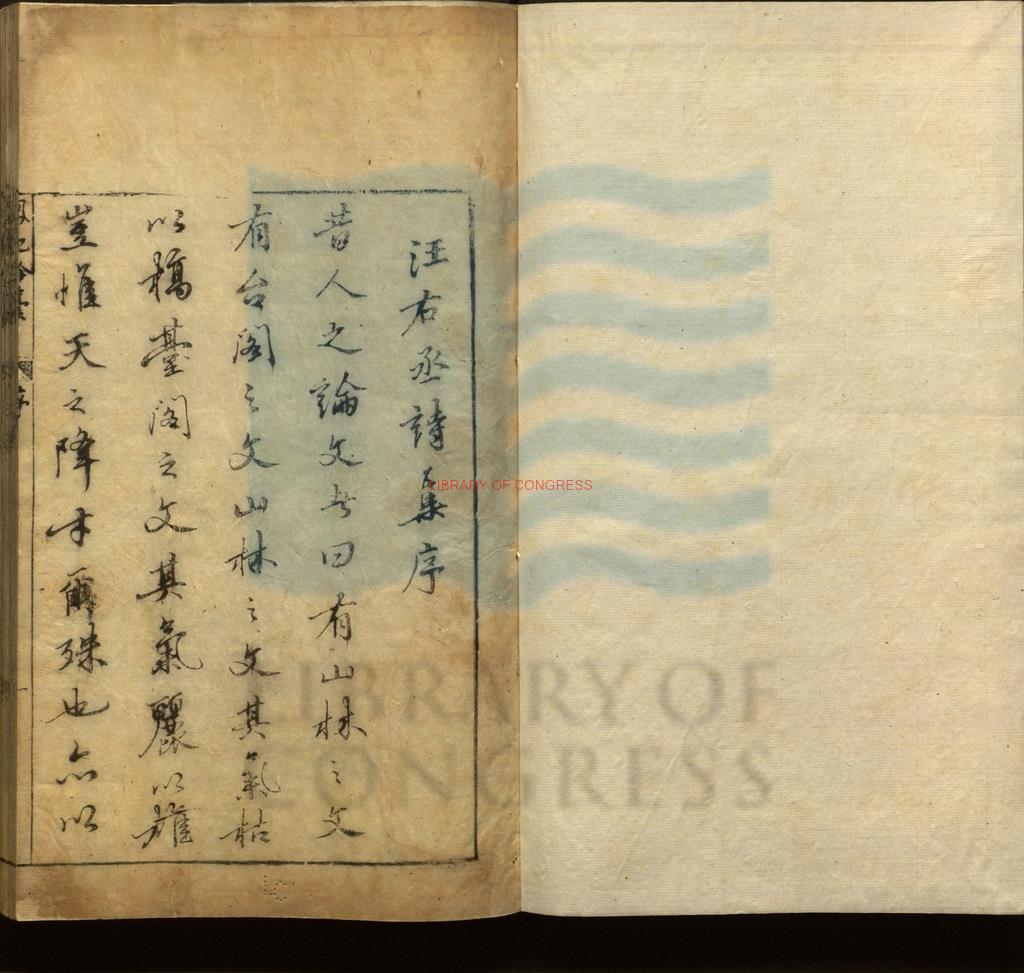 汪右丞詩集序
昔人之論文者曰有山林之文
有台閣之文山林之文其氣枯
以槁臺閣之文其氣麗以雄
豈惟天之降才爾殊也亦以
序
LIBRARY OF CONGRESS
LIBRARY OF
CONGRESS